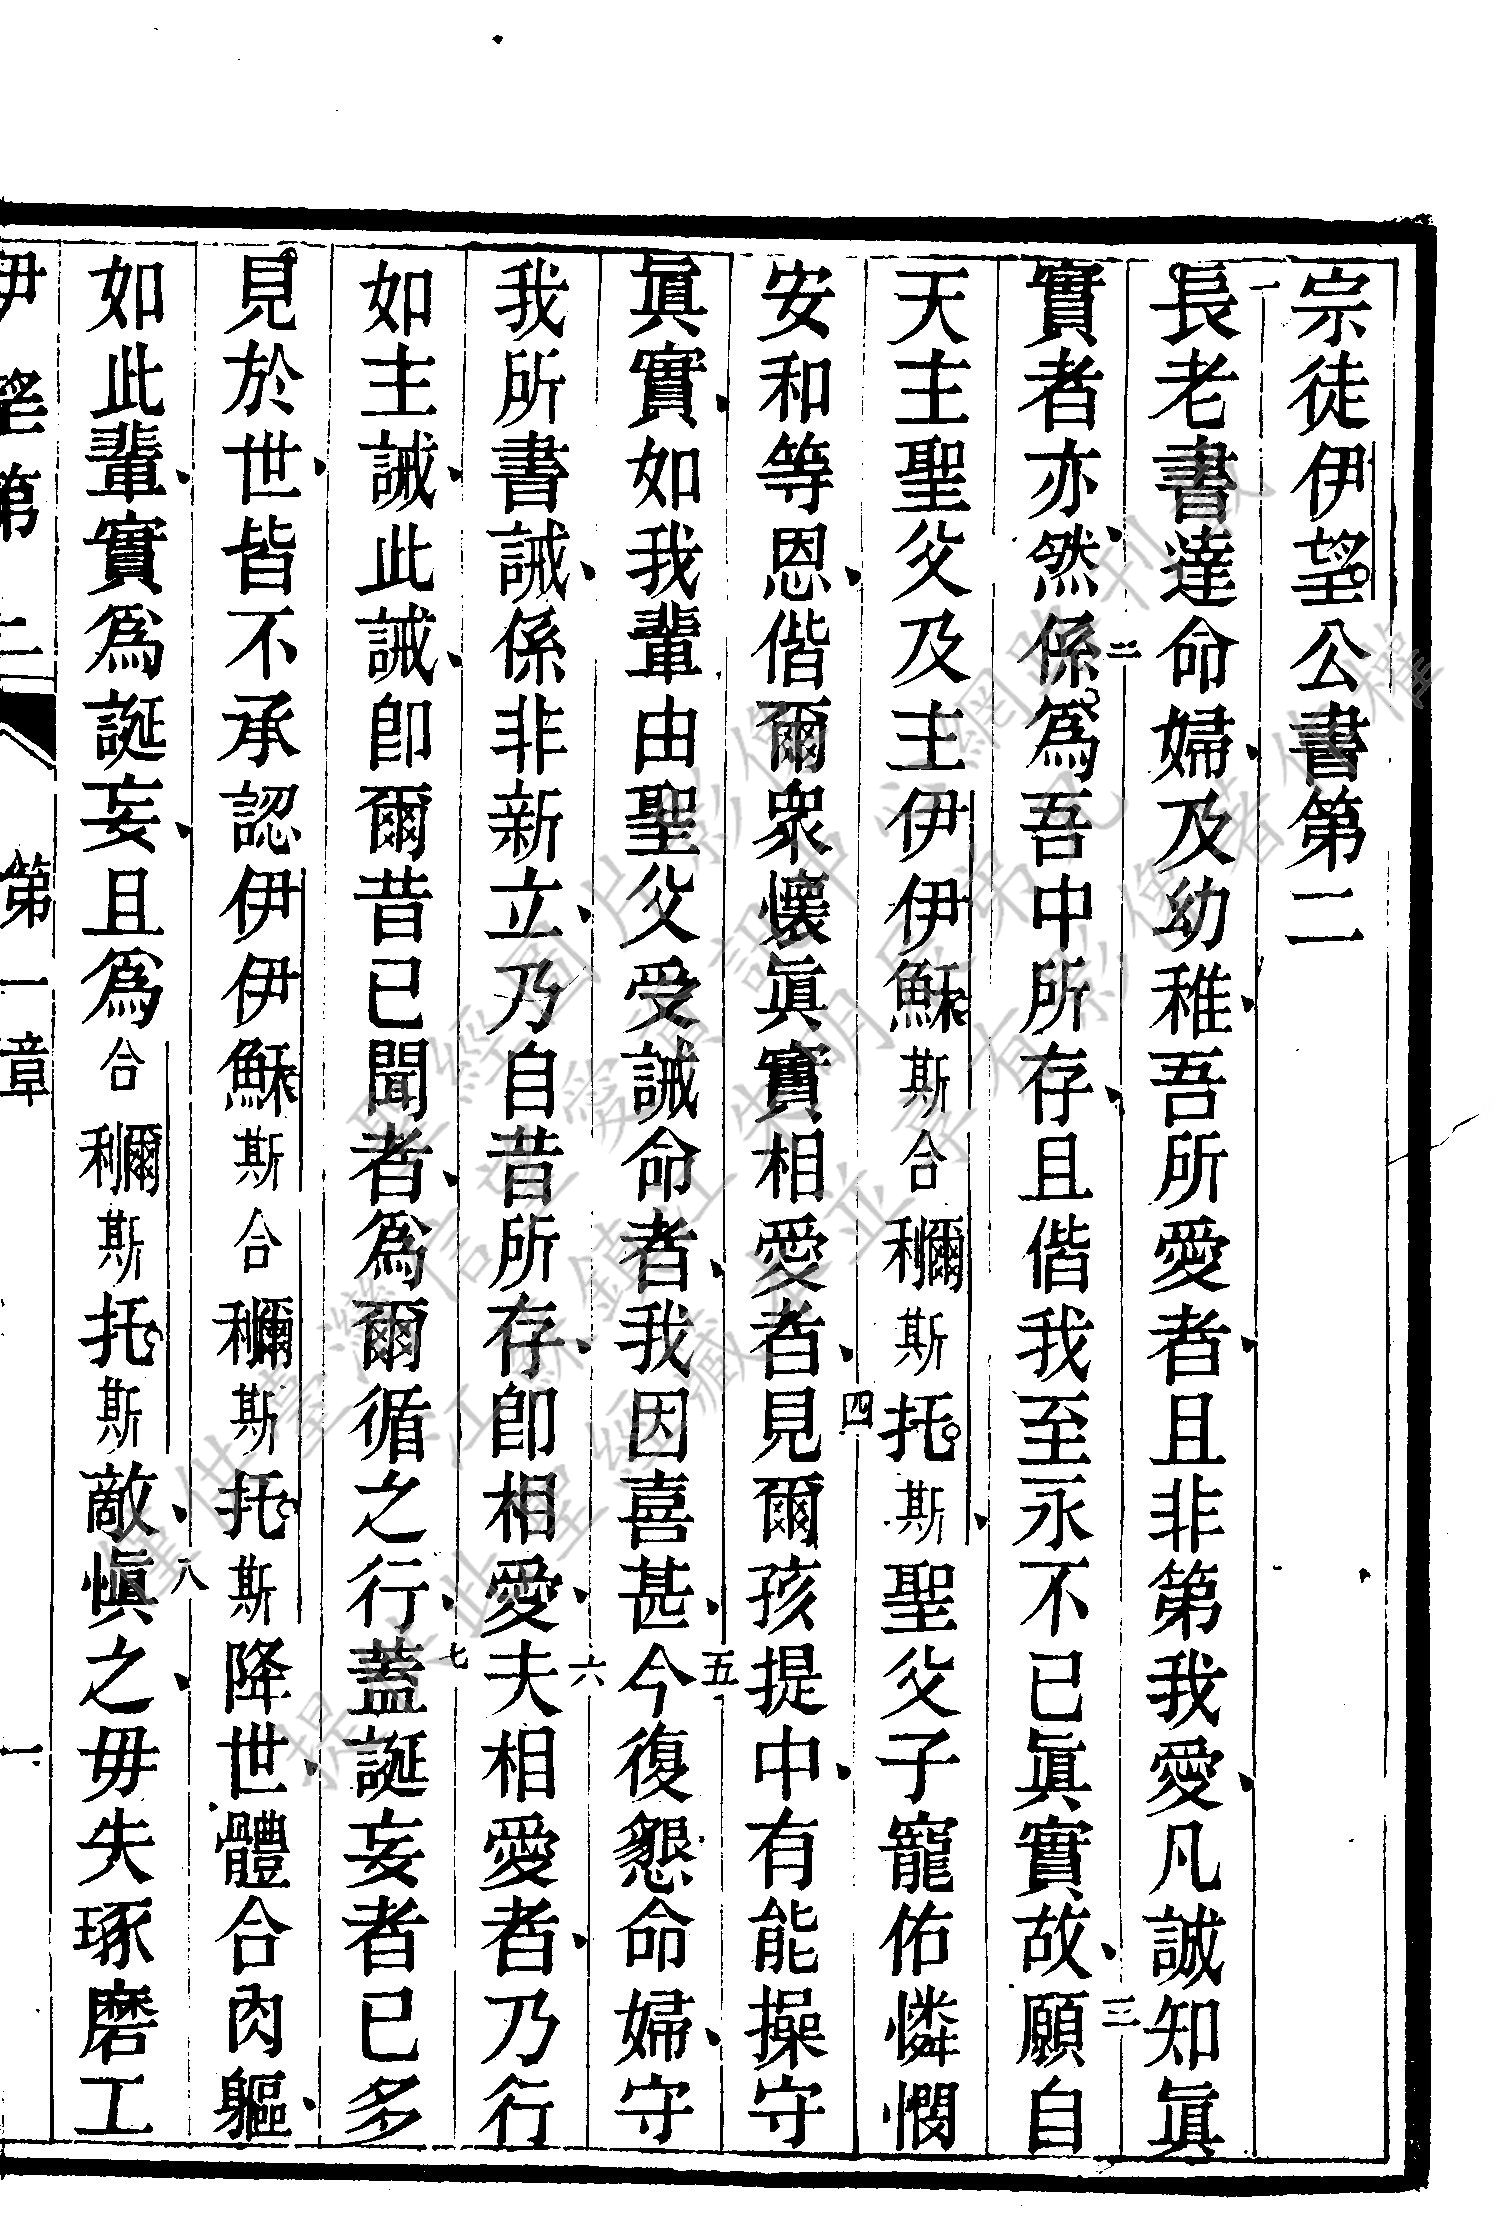 宗徒伊望公書第二
一長老書達命婦及幼稚吾所愛者且非第我愛凡誠知眞
實者亦然二係爲吾中所存且偕我至永不已眞實故三願自
天主聖父及主伊伊穌斯合利爾斯托斯聖父子寵佑憐憫
安和等恩偕爾衆懷眞實相愛者四見爾孩提中有能操守
眞實如我輩由聖父受誡命者我因喜甚五今復懇命婦守
我所書誡係非新立乃自昔所存卽相愛六夫相愛者乃行
如主誡此誡卽爾昔已聞者爲爾循之行七蓋誕妄者已多
見於世皆不承認伊伊穌斯合利爾斯托斯降世體合肉軀
如此輩實爲誕妄且爲合利爾斯托斯敵八愼之毋失琢磨工
伊望第二 第一章 一